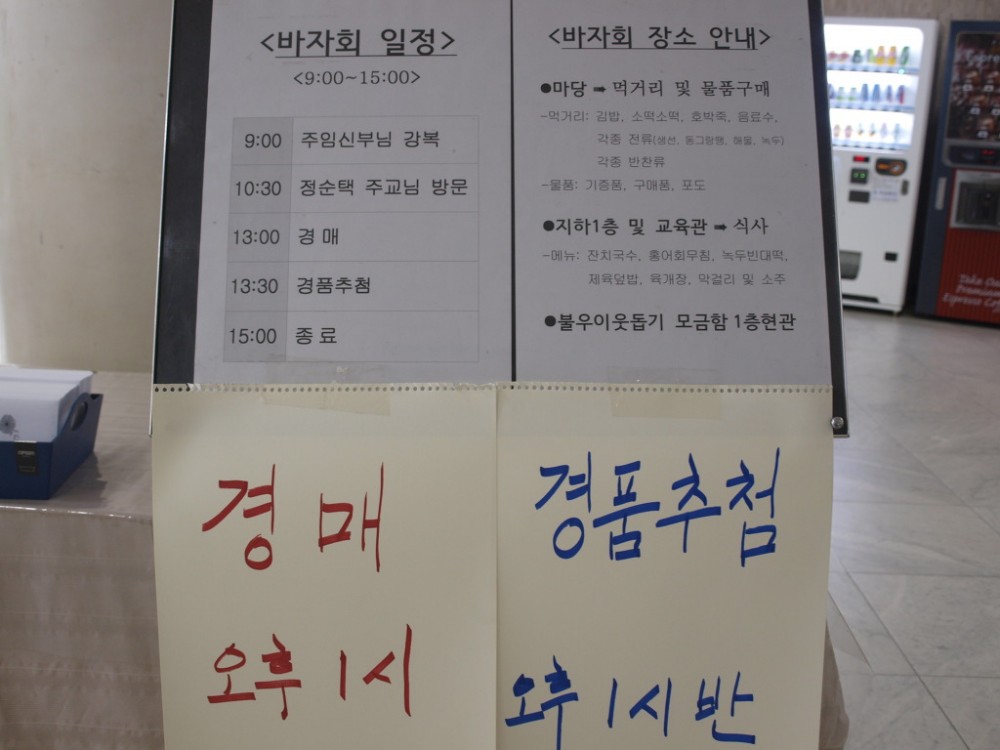 <바자회 일정>
<9:00~15:00>
9:00 주임신부님 강복
10:30 정순택 주교님 방문
13:00 경 매
13:30 경품추첨
15:00 종 료
<바자회 장소 안내>
●마당 ➡ 먹거리 및 물품구매
-먹거리: 김밥, 소떡소떡, 호박죽, 음료수,
각종 전류(생선, 동그랑땡, 해물, 녹두)
각종 반찬류
-물품: 기증품, 구매품, 포도
●지하1층 및 교육관 ➡ 식사
-메뉴: 잔치국수, 홍어회무침, 녹두빈대떡,
제육덮밥, 육개장, 막걸리 및 소주
●불우이웃돕기 모금함 1층현관
경 매
오후 1시
경품추첨
오후 1시 반
Take Out
Espresso